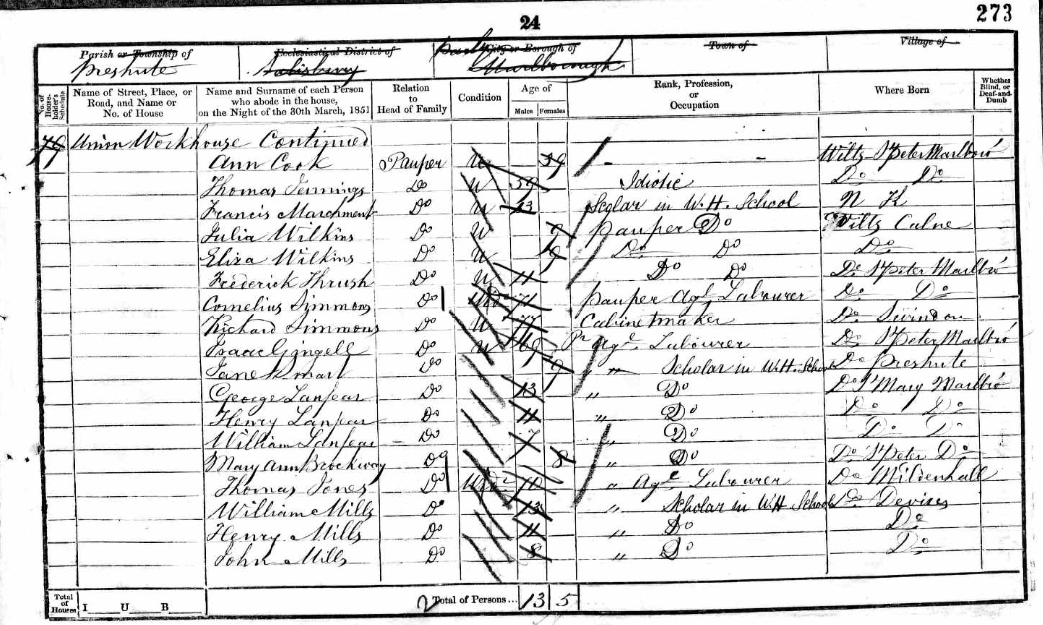 273
24
Parish or Township of Ecclesiastical District of City or Borough of Town of Village of
Preshute Salisbury Marlborough
No. of House-holder's Schedule Name of Street, Place, or Road, and Name or No. of House Name and Surname of each Person who abode in the house, on the Night of the 30th March, 1851 Relation to Head of Family Condition Age of Males Females Rank, Profession, or Occupation Where Born Whether Blind, or Deaf-and-Dumb
79 Union Workhouse Continued
Ann Cook Pauper U 59 - - Wilts St Peter Marlboro'
Thomas Jennings Do U 59 Idiotic Do Do
Francis Marchment Do U 13 Scolar in W.H. School N K
Julia Wilkins Do U 9 Pauper Do Wilts Calne
Eliza Wilkins Do U Do Do Do
Frederick Thrush Do U 11 Do Do Do St Peter Marlbro'
Cornelius Simmons Do 71 Pauper Agl Labourer Do Do
Richard Simmons Do U Cabinet maker Do Swindon
Isaac Gingell Do U Pr Agl Labourer Do St Peter Marlbro'
Jane Smart Do 9 " Scholar in W.H. School Do Preshute
George Lanfear Do 13 " Do Do St Mary Marlbro'
Henry Lanfear Do 11 " Do Do Do
William Lanfear Do 7 " Do Do Do
Mary Ann Brockway Do 8 " Do Do St Peter Do
Thomas Jones Do Widr 70 " Agl Labourer Do Mildenhall
William Mills Do 13 " Scholar in WH School Do Devizes
Henry Mills Do 11 " Do Do
John Mills Do 8 " Do Do
Total of Houses I U B 2 Total of Persons... 13 5